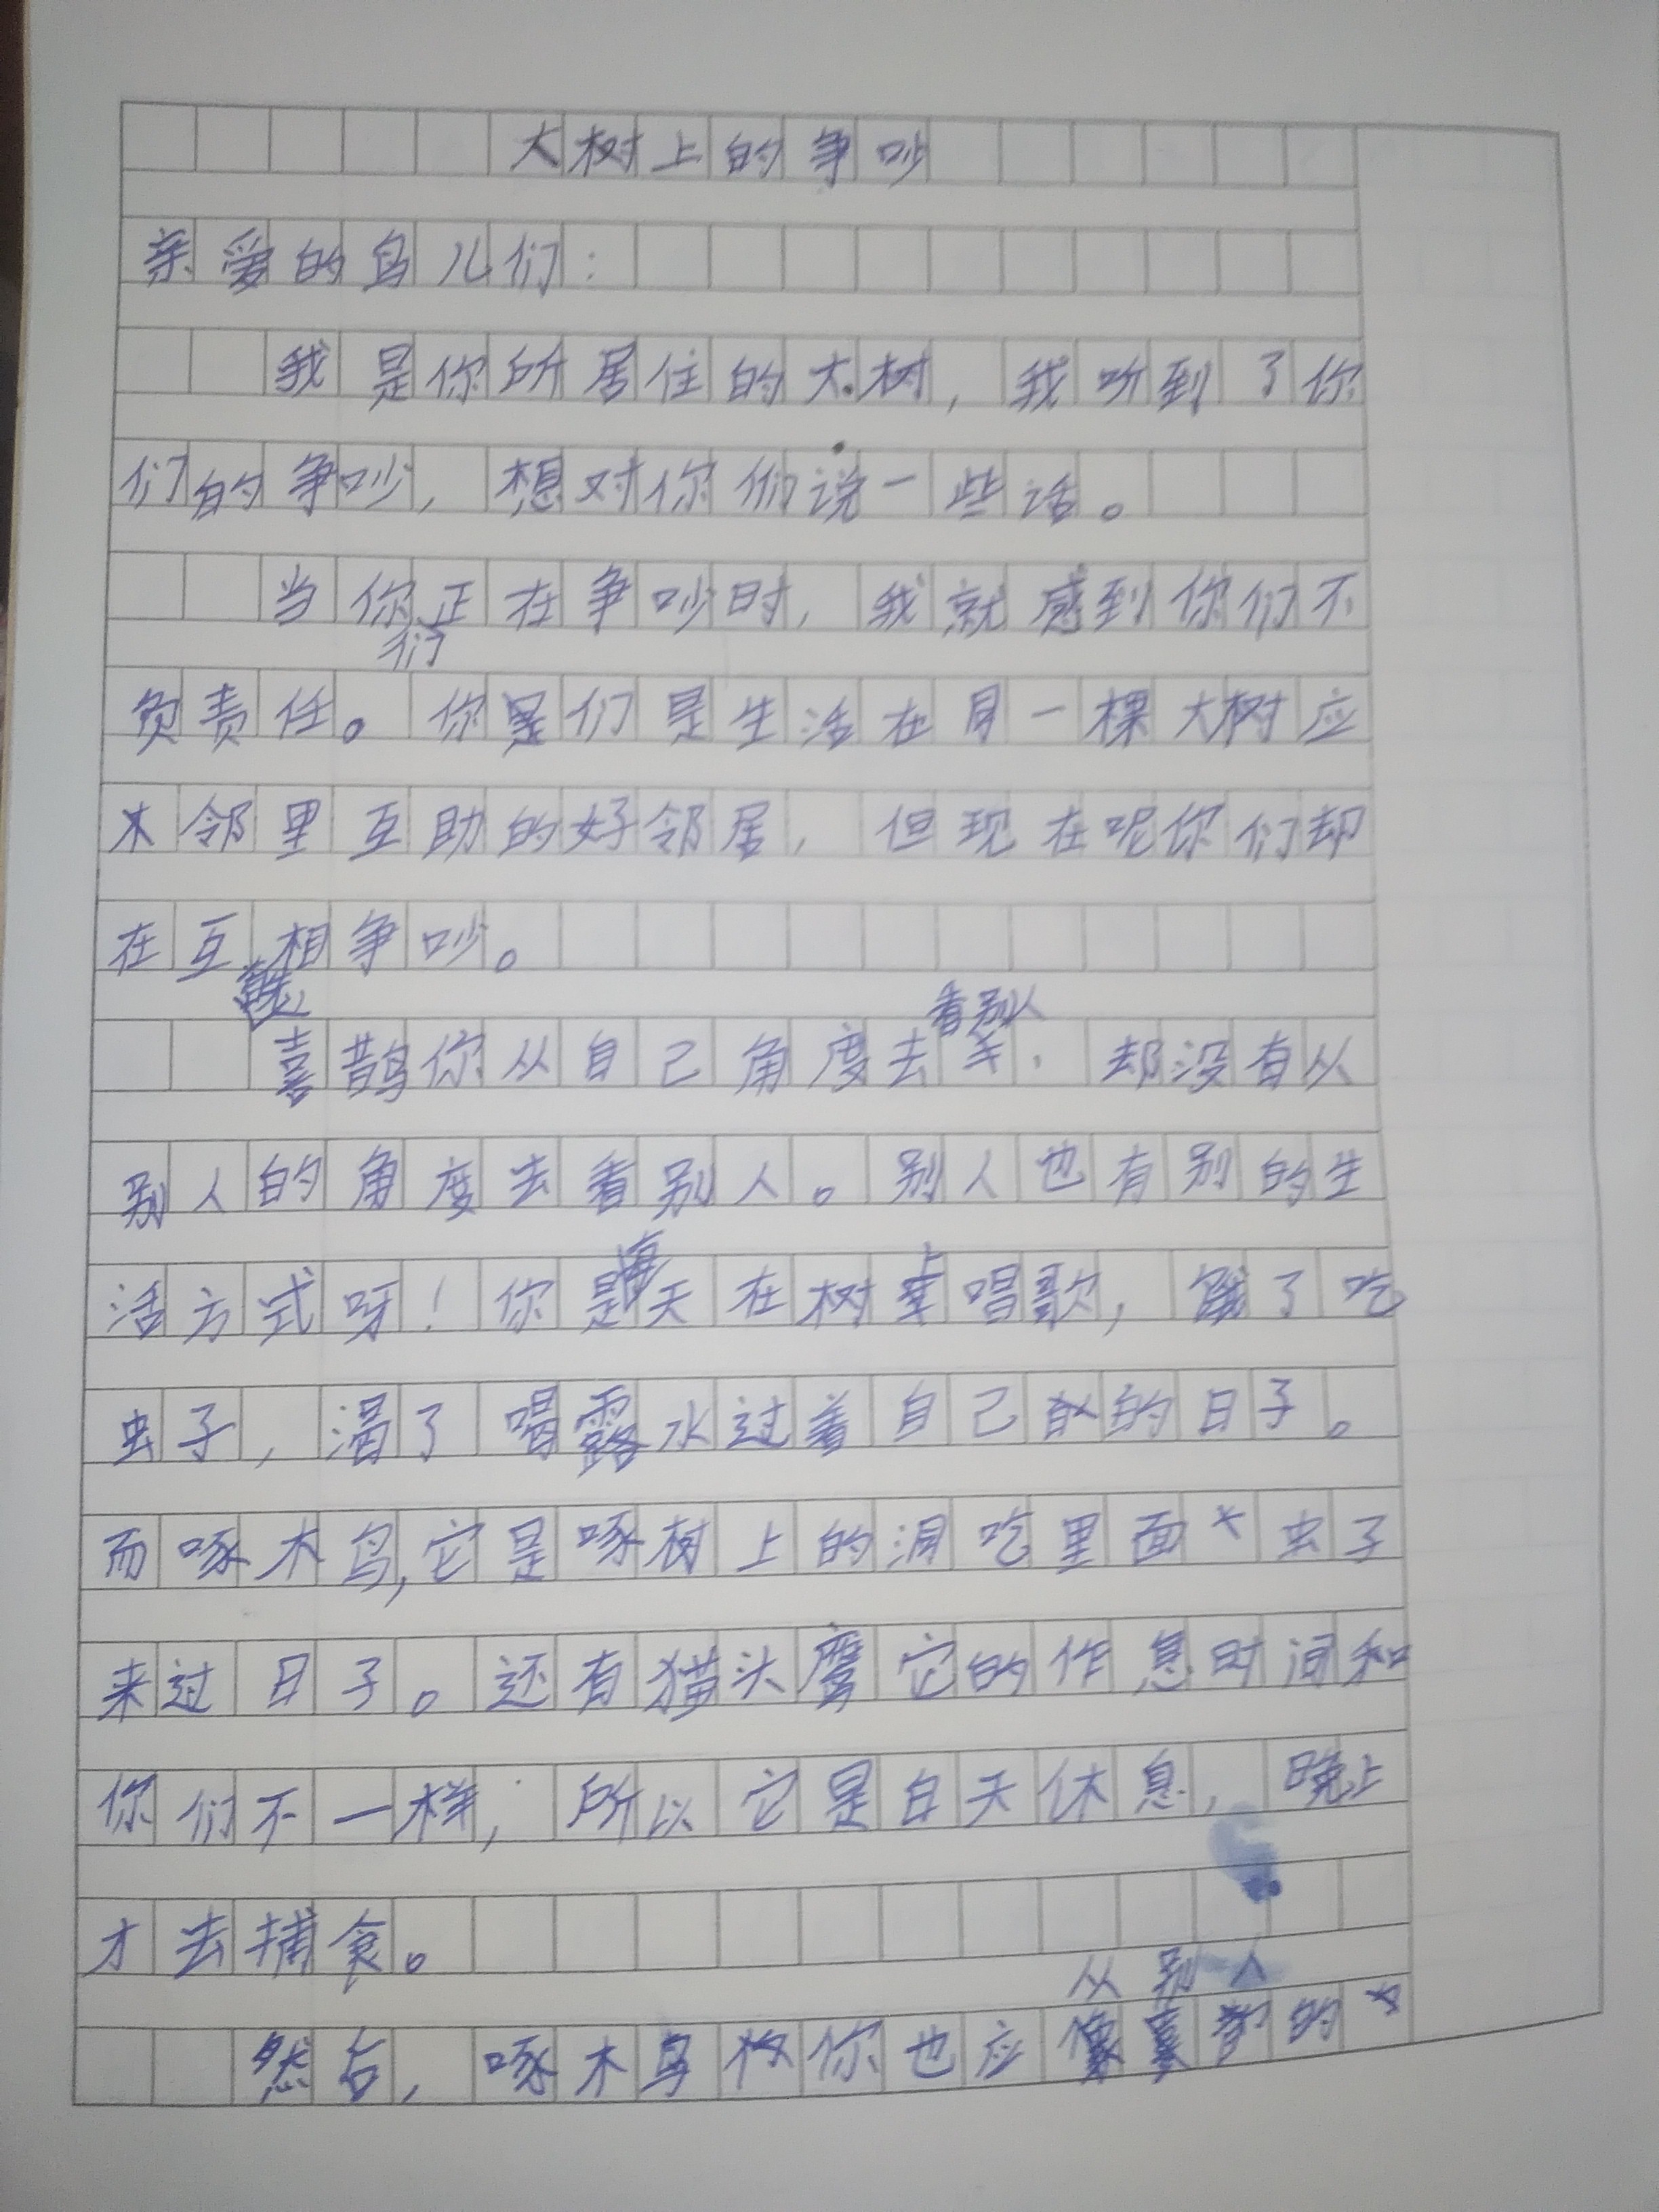 大树上的争吵
亲爱的鸟儿们：
我是你所居住的大树，我听到了你
们的争吵，想对你们说一些话。
当你们正在争吵时，我就感到你们不
负责任。你们是生活在同一棵大树应
木邻里互助的好邻居，但现在呢你们却
在互相争吵。
喜鹊你从自己角度去看别人，却没有从
别人的角度去看别人。别人也有别的生
活方式呀！你是每天在树上唱歌，饿了吃
虫子，渴了喝露水过着自己的日子。
而啄木鸟，它是啄树上的洞吃里面虫子
来过日子。还有猫头鹰它的作息时间和
你们不一样，所以它是白天休息，晚上
才去捕食。
然后，啄木鸟你也应从别人的